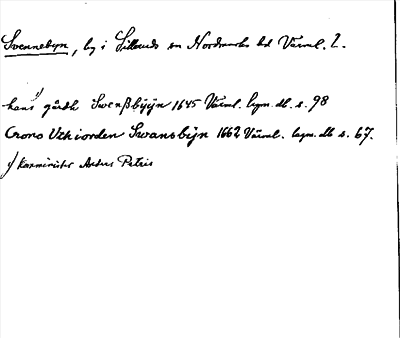 Svennebyn, by i Sillerud sn Nordmarks hd Värml. l.
hans¹⁾ gårdh Swenßbÿÿn 1645 Värml. lagm. db. s. 98
Crono Utkiorden Swansbÿn 1662 Värml. lagm. db s. 67.
¹⁾ Kaxminister Petris